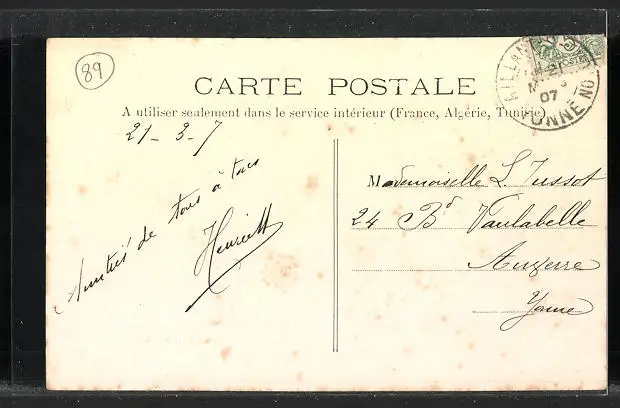 89
CARTE POSTALE
A utiliser seulement dans le service intérieur (France, Algérie, Tunisie)
21-3-7
Amitiés de tous à tous
Henriett
Mademoiselle L Jussot
24 Bd Vaulabelle
Auxerre
Yonne
AILLANT
21
07
YONNE
5
POSTES